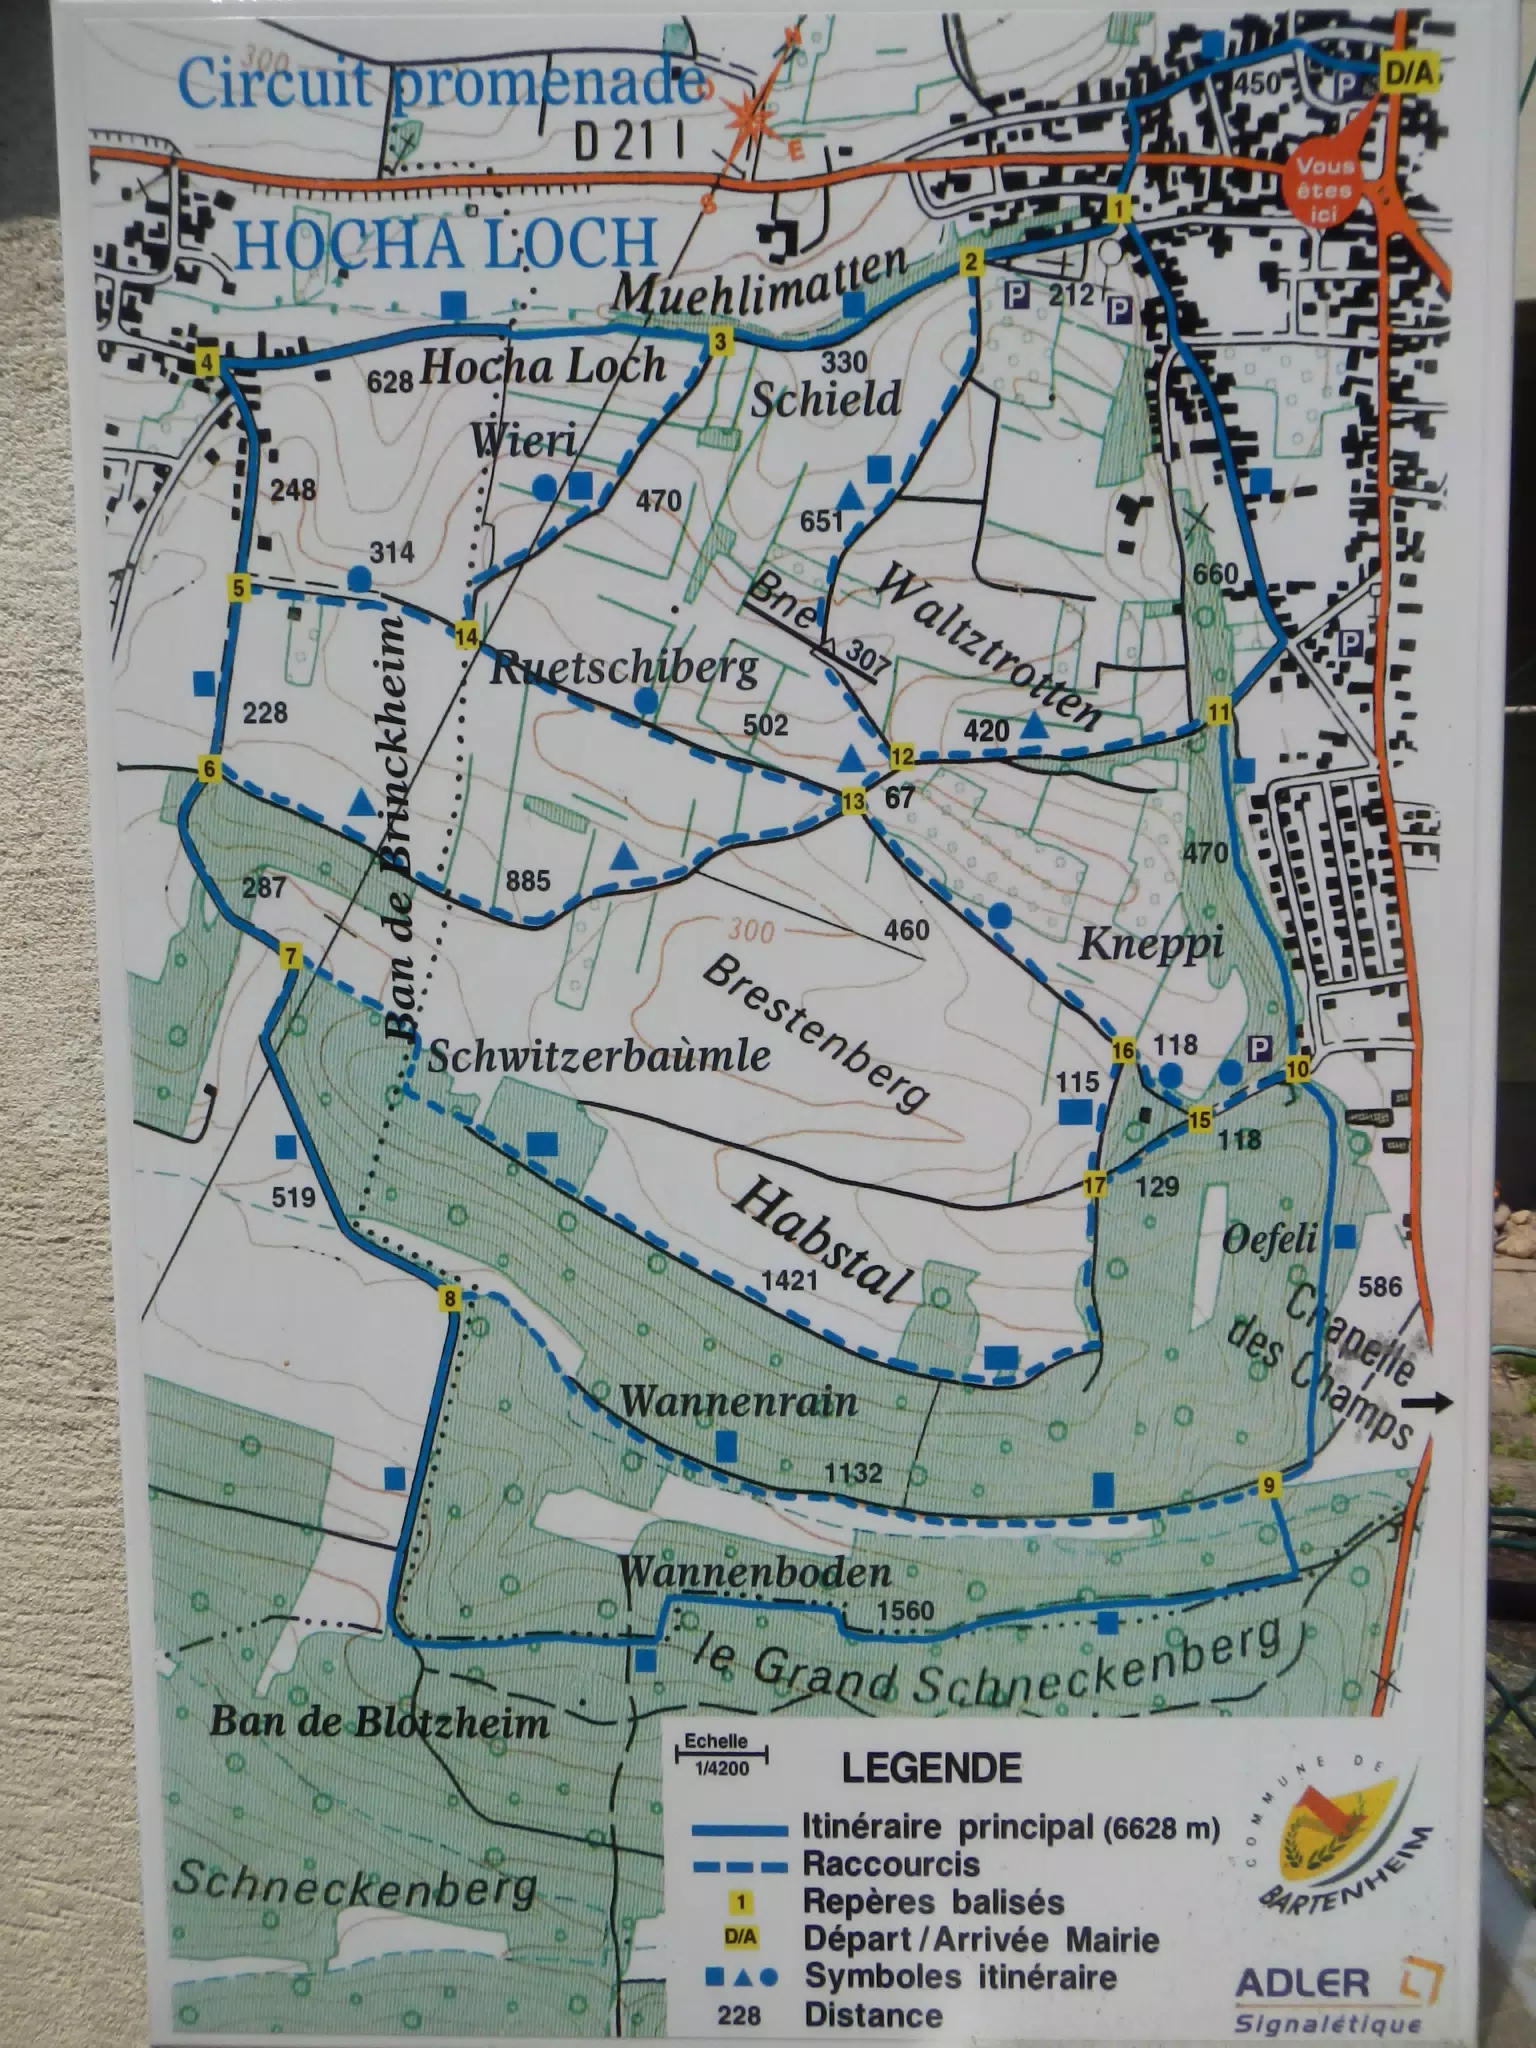 300
Circuit promenade
D 21 I
N
O
E
S
450
P
D/A
Vous
êtes
ici
HOCHA LOCH
Muehlimatten
1
2
P
212
P
3
4
628
Hocha Loch
330
Schield
Wieri
248
470
651
314
5
14
Bne
307
Waltztrotten
660
P
Ruetschiberg
228
502
420
11
12
6
13
67
Ban de Brinckheim
885
470
287
460
300
Kneppi
7
Brestenberg
Schwitzerbaùmle
16
118
P
10
115
15
118
17
129
519
Habstal
Oefeli
1421
586
8
Chapelle
des Champs
Wannenrain
1132
9
Wannenboden
1560
le Grand Schneckenberg
Ban de Blotzheim
Schneckenberg
Echelle
1/4200
LEGENDE
Itinéraire principal (6628 m)
Raccourcis
1 Repères balisés
D/A Départ/Arrivée Mairie
Symboles itinéraire
228 Distance
COMMUNE DE
BARTENHEIM
ADLER
Signalétique